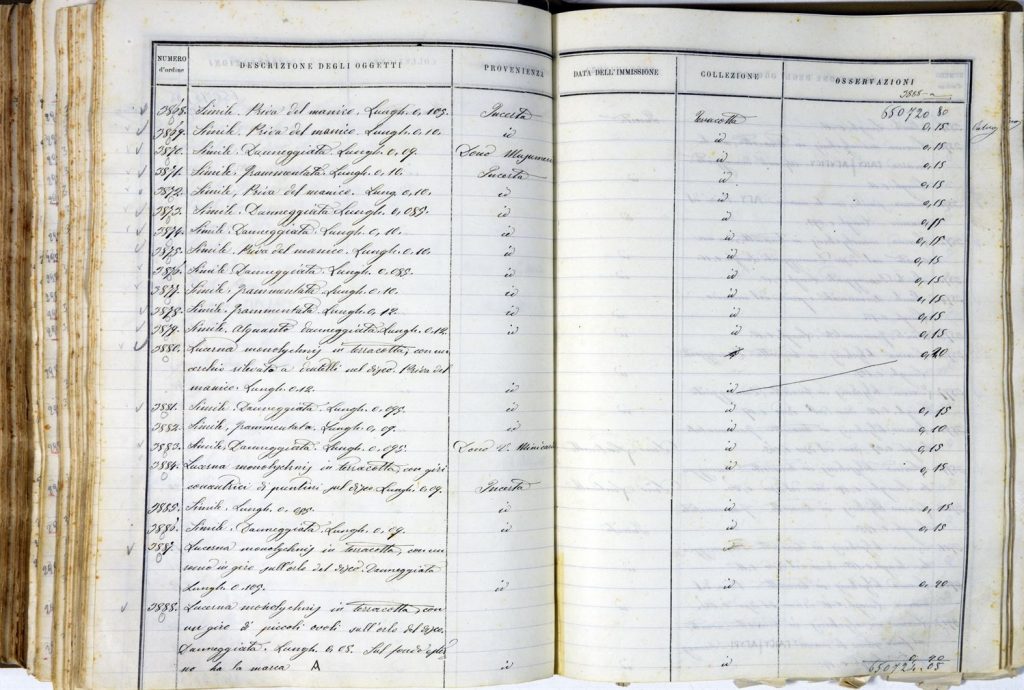 NUMERO d'ordine DESCRIZIONE DEGLI OGGETTI PROVENIENZA DATA DELL'IMMISSIONE COLLEZIONE OSSERVAZIONI
650720 80
Simile. Priva del manico. Lungh. 0,105. Incerta Terracotta 0,15
Simile. Priva del manico. Lungh. 0,10. id id 0,15
3870. Simile. Danneggiata. Lungh. 0,09. Dono id 0,15
3871. Simile, frammentata. Lungh. 0,10. Incerta id 0,15
3872. Simile, Priva del manico. Lung. 0,10. id id 0,15
3873. Simile. Danneggiata. Lungh. 0,085. id id 0,15
3874. Simile. Danneggiata. Lungh. 0,10. id id 0,15
3875. Simile. Priva del manico. Lungh. 0,10. id id 0,15
3876. Simile. Danneggiata. Lungh. 0,085. id id 0,15
3877. Simile, frammentata. Lungh. 0,10 id id 0,15
3878. Simile, frammentata. Lungh. 0,12. id id 0,15
3879. Simile. Alquanto danneggiata. Lungh. 0,12. id id 0,15
3880. Lucerna monolychnis in terracotta, con un id 0,20
cerchio rilevato a nel disco. Priva del
manico. Lungh. 0,12. id id
3881. Simile. Danneggiata. Lungh. 0,095. id id 0,15
3882. Simile, frammentata. Lungh. 0,09. id id 0,10
3883. Simile, Danneggiata. Lungh. 0,095. Dono id 0,15
3884. Lucerna monolychnis in terracotta, con giri id 0,15
concentrici di puntini sul disco. Lungh. 0,09. Incerta id
3885. Simile. Lungh. 0,085. id id 0,15
3886. Simile. Danneggiata. Lungh. 0,09. id id 0,15
3887. Lucerna monolychnis in terracotta, con un id
in giro sull'orlo del disco. Danneggiata
Lungh. 0,105. id id 0,20
3888. Lucerna monolychnis in terracotta, con
un giro di piccoli ovoli sull'orlo del disco.
Danneggiata. Lungh. 0,08. Sul fondo
no ha la marca A id id 0,20
650724.05